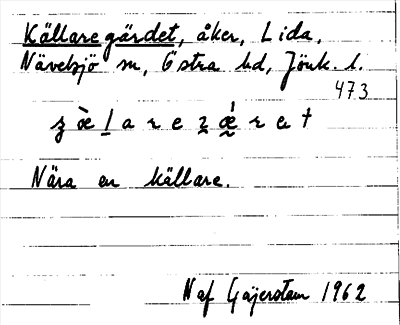 Källaregärdet, åker, Lida,
Nävelsjö sn, Östra hd, Jönk. l.
473
Nära en källare.
Naf Gajerstam 1962